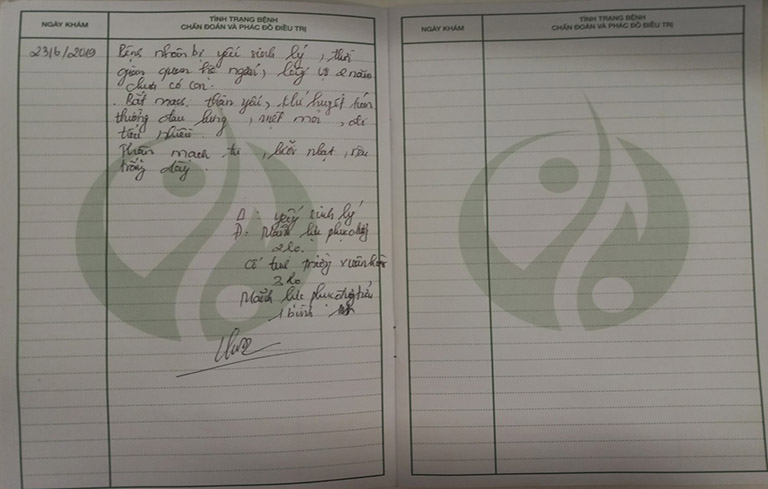 NGÀY KHÁM
TÌNH TRẠNG BỆNH
CHẨN ĐOÁN VÀ PHÁC ĐỒ ĐIỀU TRỊ
23/6/2019
Bệnh nhân bị yếu sinh lý, thời
gian quan hệ ngắn, lấy vợ 2 năm
chưa có con.
Bắt mạch: thận yếu, khí huyết kém
thường đau lưng, mệt mỏi, đi
tiểu nhiều.
Thân mạch tế, lưỡi nhạt, rêu
trắng dày.
Δ: yếu sinh lý
Đ: Mãnh lực phục
2 lọ
Cố tinh
2 lọ
Mãnh lực phục
1 bình
NGÀY KHÁM
TÌNH TRẠNG BỆNH
CHẨN ĐOÁN VÀ PHÁC ĐỒ ĐIỀU TRỊ